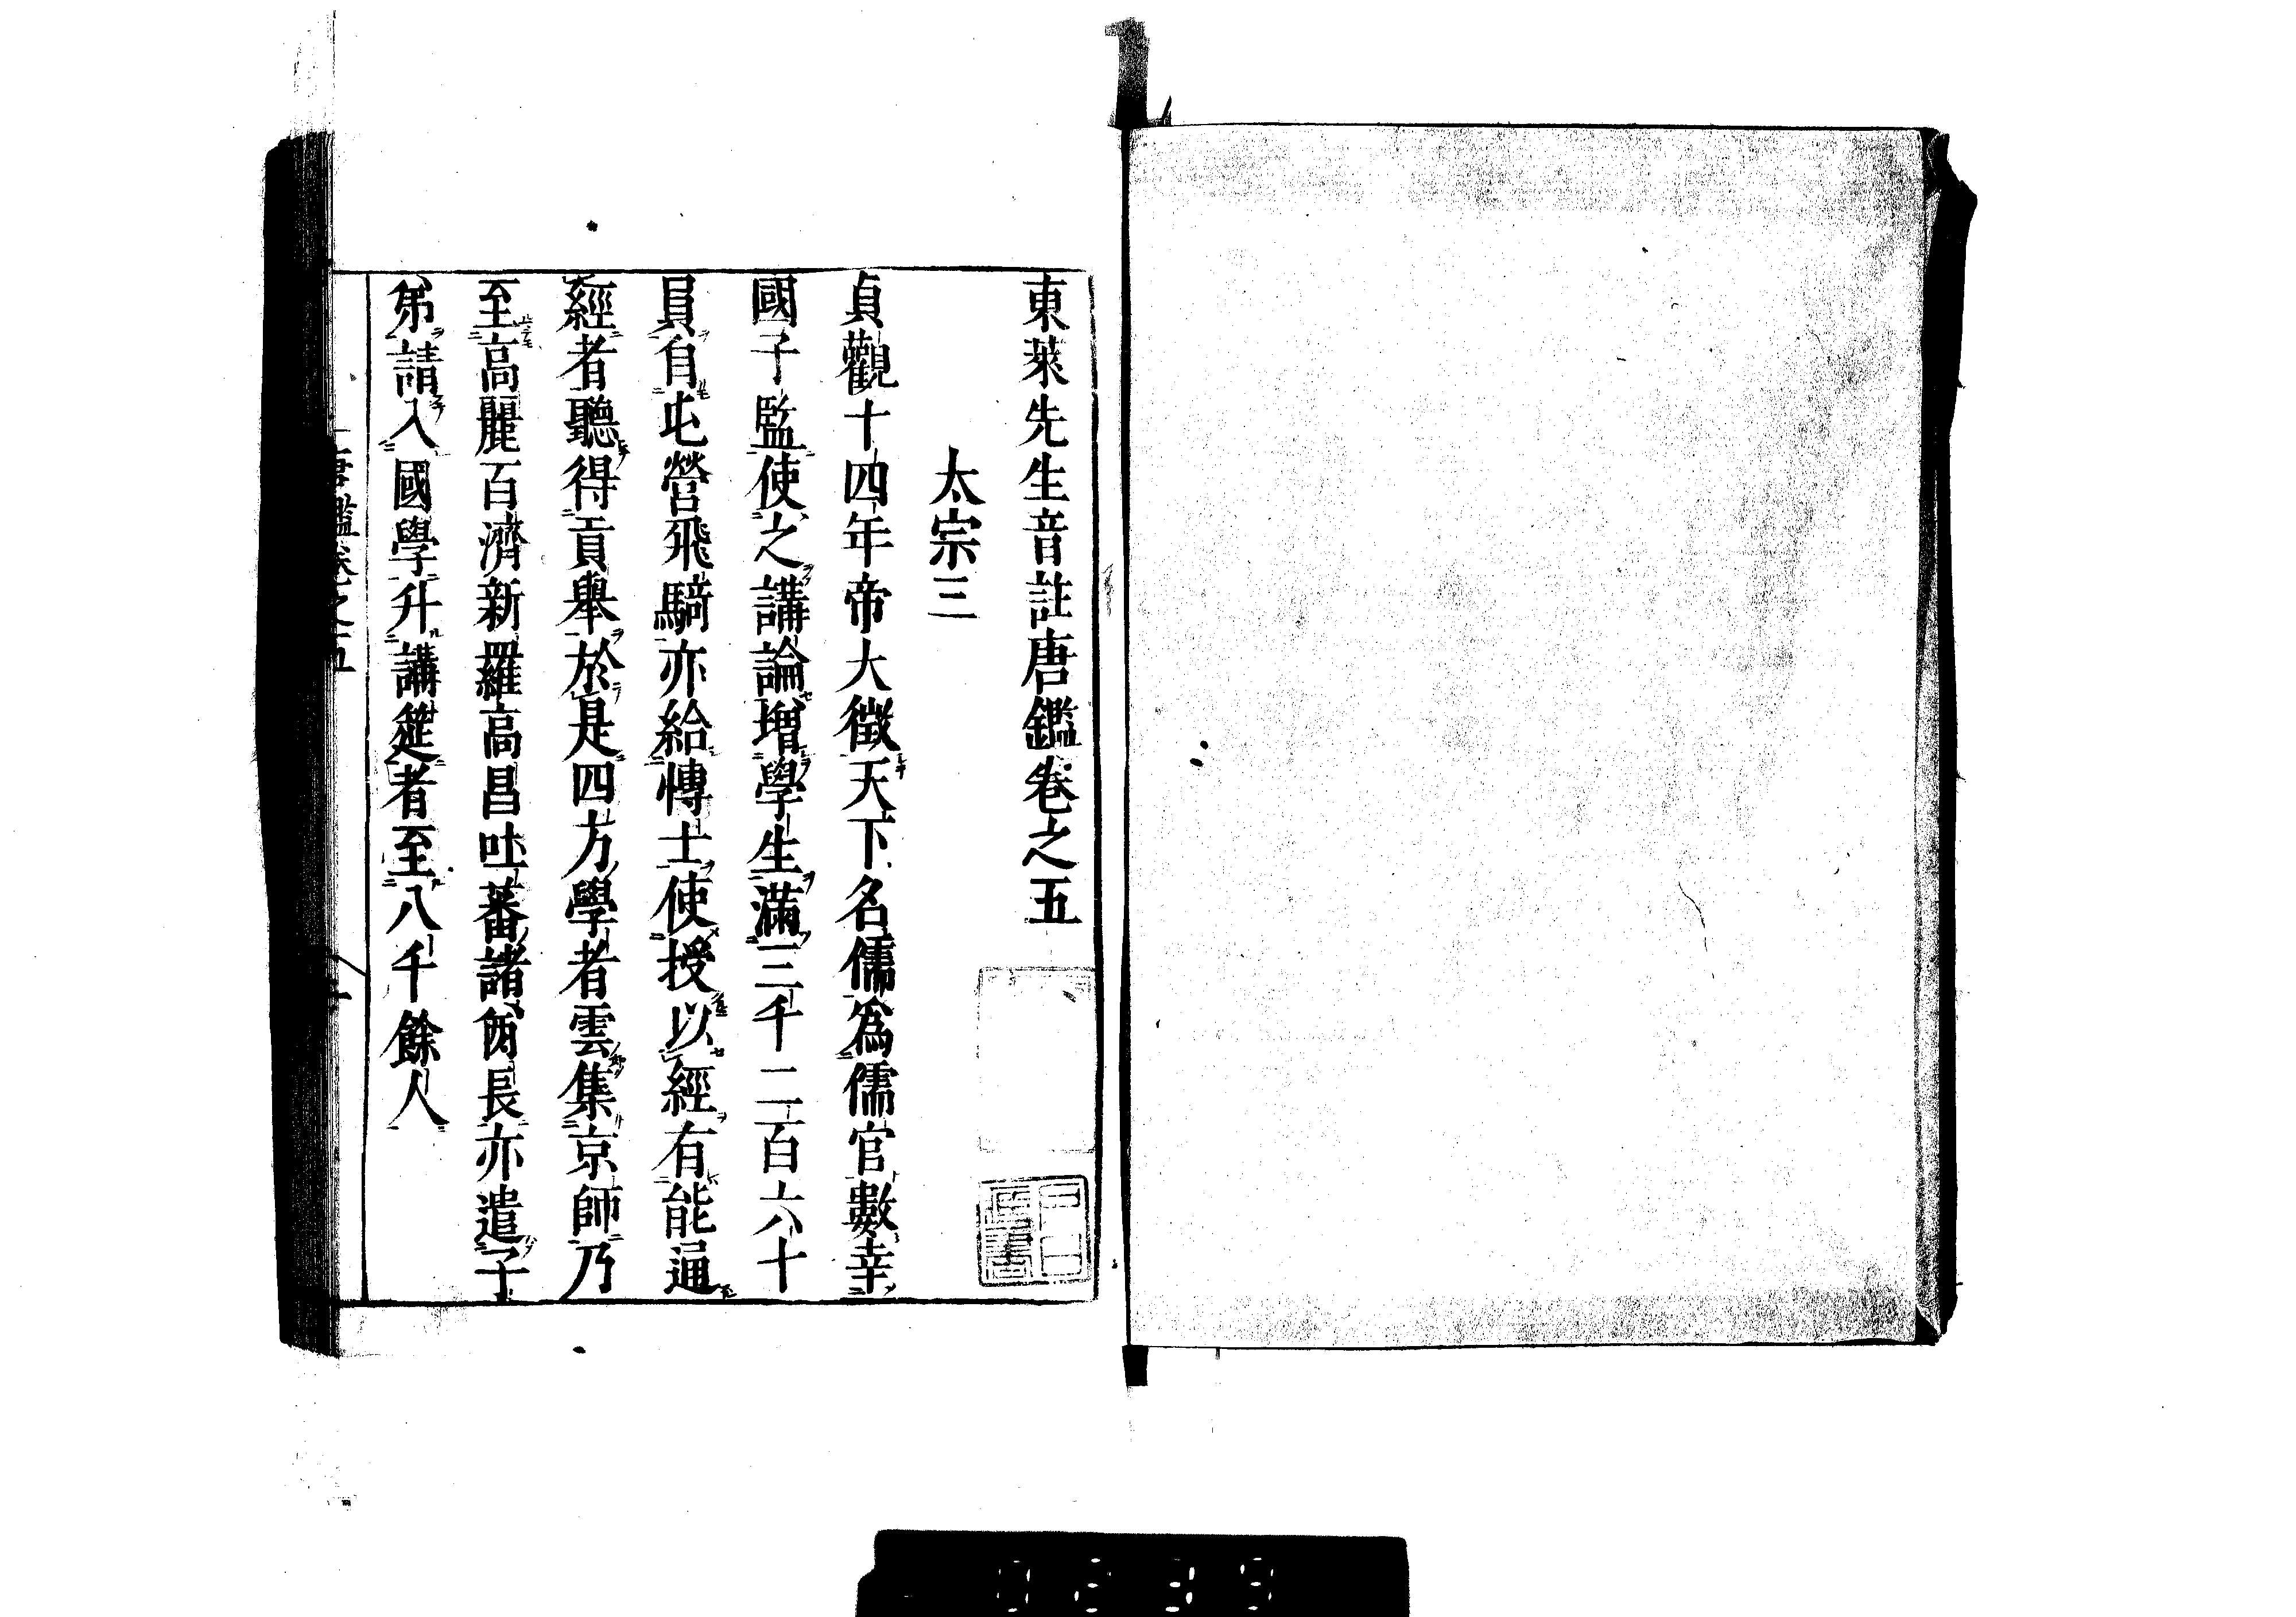 東萊先生音註唐鑑卷之五
太宗三
貞觀十四年帝大徵天下名儒爲儒官數幸
國子監使之講論增學生滿三千二百六十
員自屯營飛騎亦給博士使授以經有能通
經者聽得貢舉於是四方學者雲集京師乃
至高麗百濟新羅高昌吐蕃諸酋長亦遣子
弟請入國學升講筵者至八千餘人
唐鑑卷之五
0239